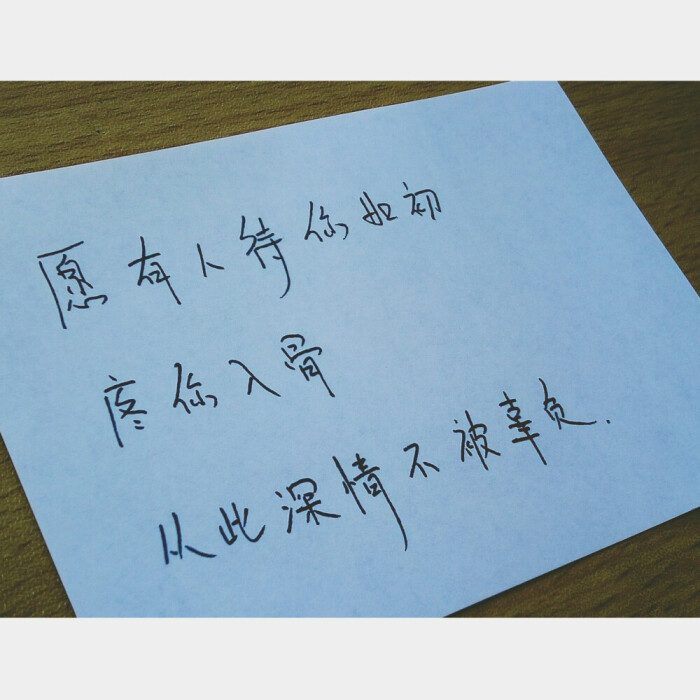 愿有人待你如初
疼你入骨
从此深情不被辜负.